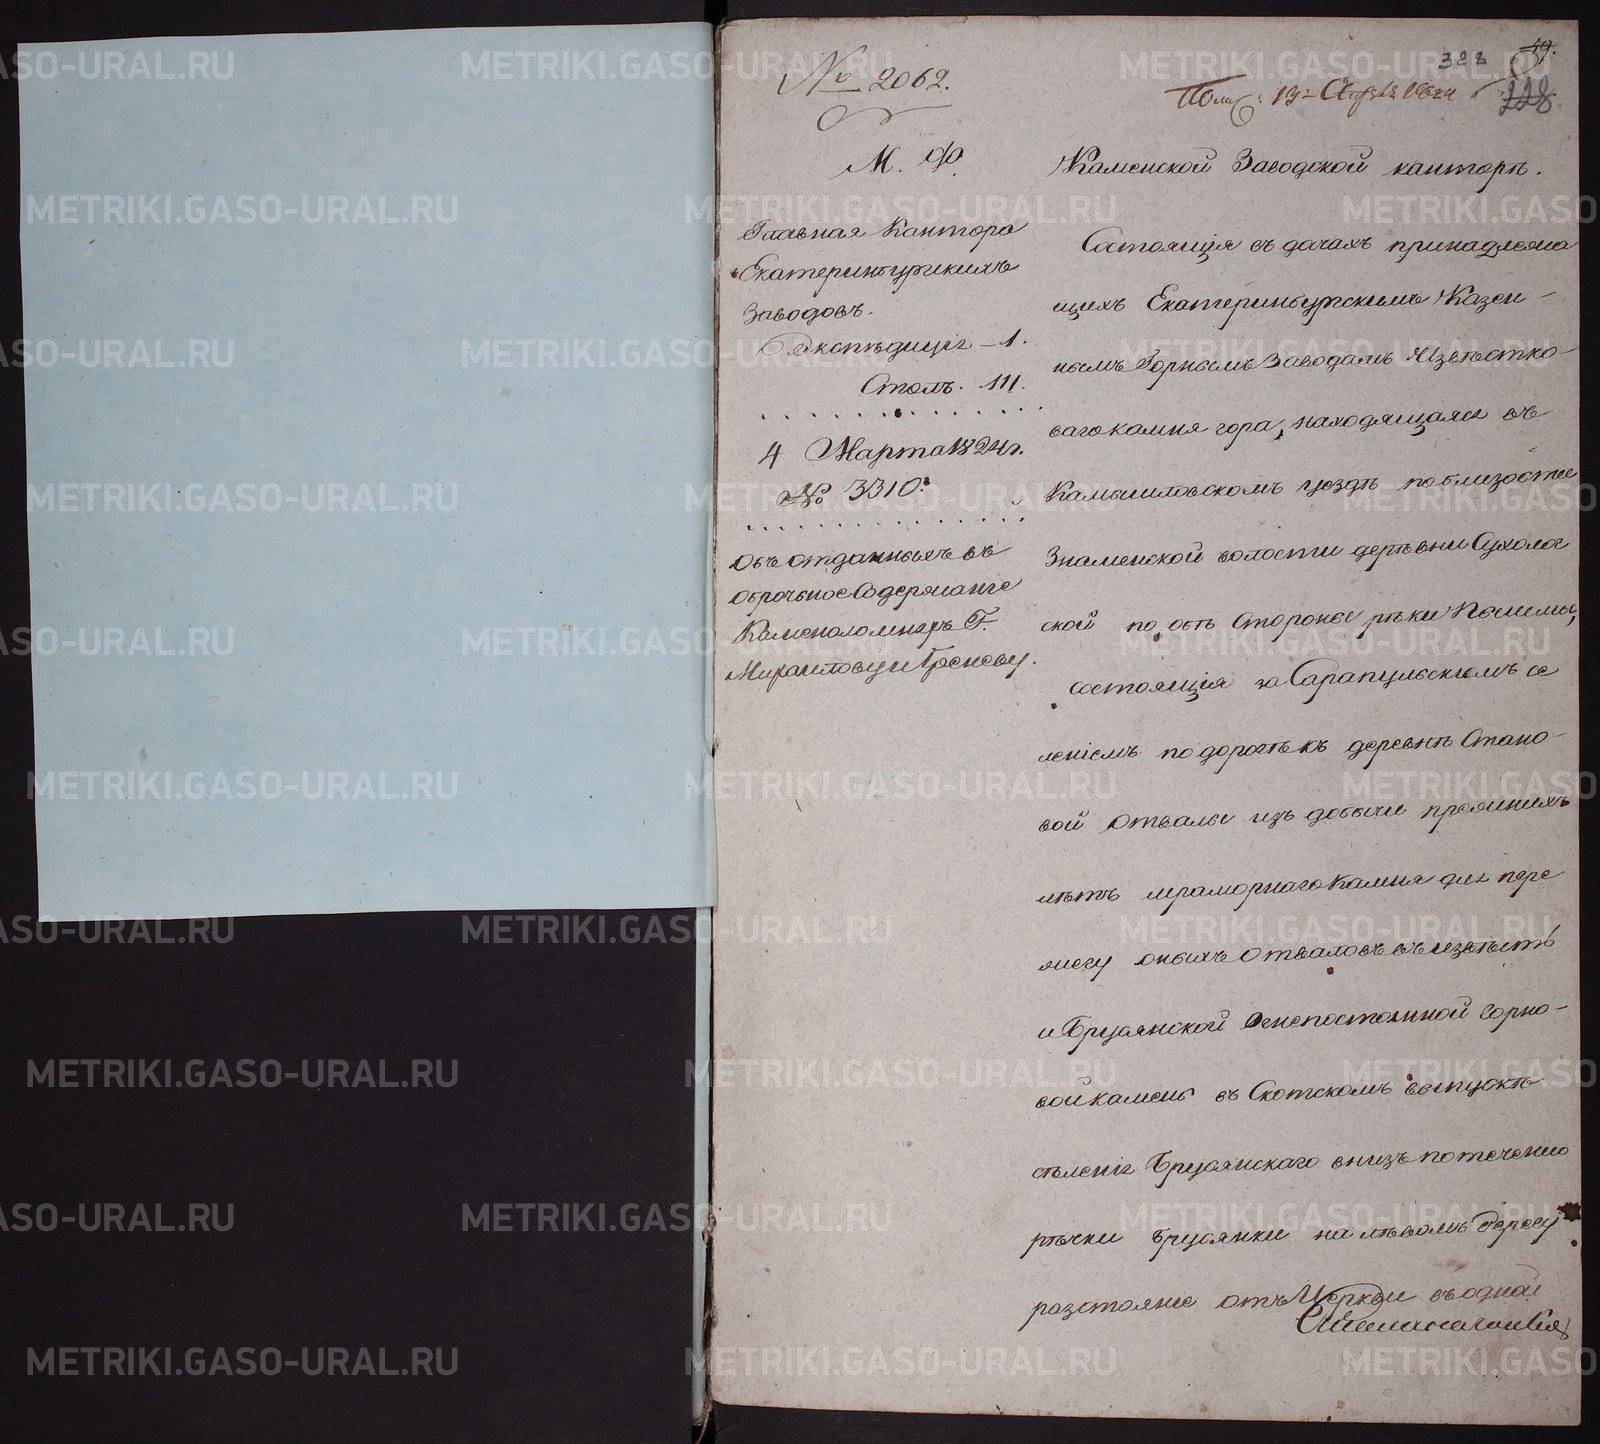 № 2062.
388
49.
228
Пол: 13 Апр:
М. Ф.
Главная Кантора
Екатеринбургскихъ
Заводовъ.
Экспѣдиція – 1.
Столъ. III.
4 Марта 1824 г.
№ 3310.
объ отданныхъ въ
оброчное Содержаніе
Каменоломняхъ Г.
Каменской Заводской канторѣ.
Состоящія въ дачахъ принадлежа
щихъ Екатеринбургскимъ Казен-
нымъ Горнымъ Заводамъ Извѣстко-
ваго камня гора, находящаяся въ
Камышловскомъ уездѣ поблизости
Знаменской волости деревни Сухолог
ской по ось Стороны рѣки Пышмы,
состоящія за Сарапульскимъ се
леніемъ по дорогѣ къ деревнѣ Стано-
вой отвалы изъ добычи прежнихъ
лѣтъ мраморнаго камня для пере
жегу оныхъ отваловъ въ извѣсть
и Брусянской огнепостоянной горно-
вой камень въ Скотскомъ выпускѣ
селенія Брусянскаго внизъ по теченію
рѣчки Брусянки на лѣвомъ берегу
разстояніе отъ Церкви въ одной
METRIKI.GASO-URAL.RU